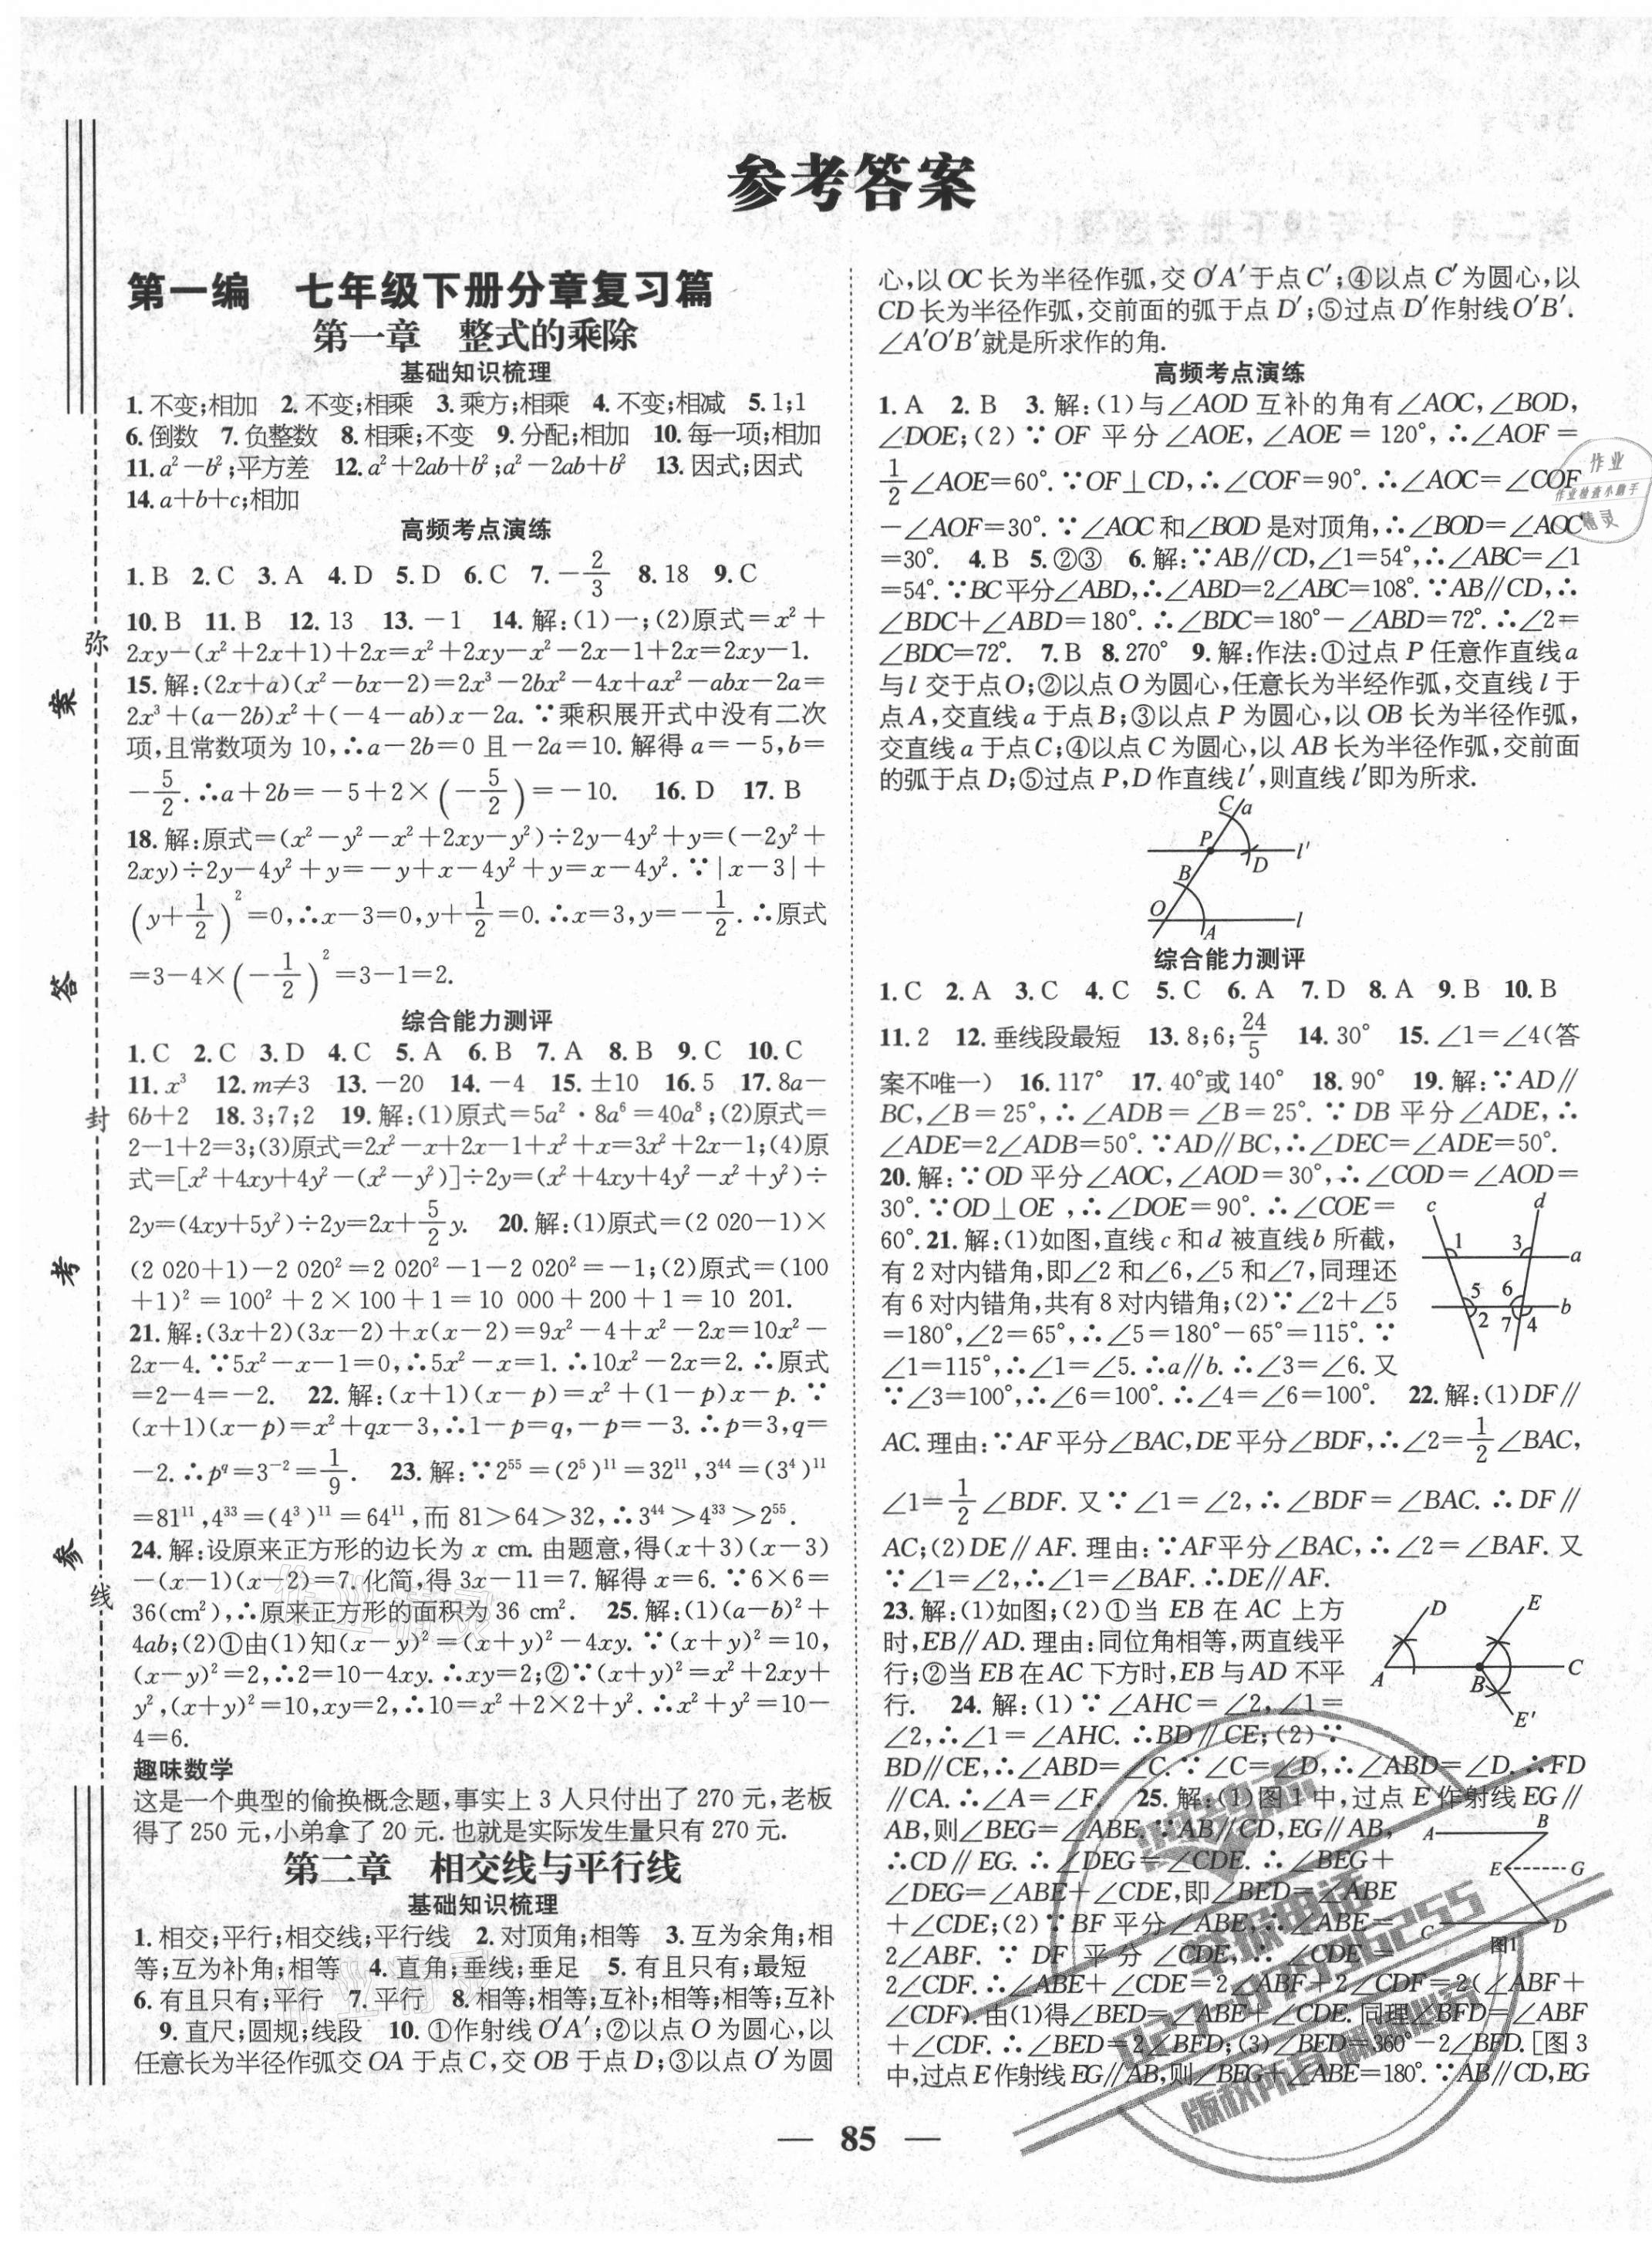 参考答案
第一编　七年级下册分章复习篇
第一章　整式的乘除
基础知识梳理
1. 不变;相加　2. 不变;相乘　3. 乘方;相乘　4. 不变;相减　5. 1;1
6. 倒数　7. 负整数　8. 相乘;不变　9. 分配;相加　10. 每一项;相加
11. a²－b²;平方差　12. a²＋2ab＋b²;a²－2ab＋b²　13. 因式;因式
14. a＋b＋c;相加
高频考点演练
1. B　2. C　3. A　4. D　5. D　6. C　7. －2/3　8. 18　9. C
10. B　11. B　12. 13　13. －1　14. 解:(1)一;(2)原式＝x²＋
2xy－(x²＋2x＋1)＋2x＝x²＋2xy－x²－2x－1＋2x＝2xy－1.
15. 解:(2x＋a)(x²－bx－2)＝2x³－2bx²－4x＋ax²－abx－2a＝
2x³＋(a－2b)x²＋(－4－ab)x－2a. ∵乘积展开式中没有二次
项,且常数项为 10,∴a－2b＝0 且－2a＝10. 解得 a＝－5,b＝
－5/2. ∴a＋2b＝－5＋2×(－5/2)＝－10.　16. D　17. B
18. 解:原式＝(x²－y²－x²＋2xy－y²)÷2y－4y²＋y＝(－2y²＋
2xy)÷2y－4y²＋y＝－y＋x－4y²＋y＝x－4y². ∵|x－3|＋
(y＋1/2)²＝0,∴x－3＝0,y＋1/2＝0. ∴x＝3,y＝－1/2. ∴原式
＝3－4×(－1/2)²＝3－1＝2.
综合能力测评
1. C　2. C　3. D　4. C　5. A　6. B　7. A　8. B　9. C　10. C
11. x³　12. m≠3　13. －20　14. －4　15. ±10　16. 5　17. 8a－
6b＋2　18. 3;7;2　19. 解:(1)原式＝5a²·8a⁶＝40a⁸;(2)原式＝
2－1＋2＝3;(3)原式＝2x²－x＋2x－1＋x²＋x＝3x²＋2x－1;(4)原
式＝[x²＋4xy＋4y²－(x²－y²)]÷2y＝(x²＋4xy＋4y²－x²＋y²)÷
2y＝(4xy＋5y²)÷2y＝2x＋5/2y.　20. 解:(1)原式＝(2 020－1)×
(2 020＋1)－2 020²＝2 020²－1－2 020²＝－1;(2)原式＝(100
＋1)²＝100²＋2×100＋1＝10 000＋200＋1＝10 201.
21. 解:(3x＋2)(3x－2)＋x(x－2)＝9x²－4＋x²－2x＝10x²－
2x－4. ∵5x²－x－1＝0,∴5x²－x＝1. ∴10x²－2x＝2. ∴原式
＝2－4＝－2.　22. 解:(x＋1)(x－p)＝x²＋(1－p)x－p. ∵
(x＋1)(x－p)＝x²＋qx－3,∴1－p＝q,－p＝－3. ∴p＝3,q＝
－2. ∴p^q＝3⁻²＝1/9.　23. 解:∵2⁵⁵＝(2⁵)¹¹＝32¹¹,3⁴⁴＝(3⁴)¹¹
＝81¹¹,4³³＝(4³)¹¹＝64¹¹,而 81＞64＞32,∴3⁴⁴＞4³³＞2⁵⁵.
24. 解:设原来正方形的边长为 x cm. 由题意,得(x＋3)(x－3)
－(x－1)(x－2)＝7. 化简,得 3x－11＝7. 解得 x＝6. ∵6×6＝
36(cm²),∴原来正方形的面积为 36 cm².　25. 解:(1)(a－b)²＋
4ab;(2)①由(1)知(x－y)²＝(x＋y)²－4xy. ∵(x＋y)²＝10,
(x－y)²＝2,∴2＝10－4xy. ∴xy＝2;②∵(x＋y)²＝x²＋2xy＋
y²,(x＋y)²＝10,xy＝2,∴10＝x²＋2×2＋y². ∴x²＋y²＝10－
4＝6.
趣味数学
这是一个典型的偷换概念题,事实上 3 人只付出了 270 元,老板
得了 250 元,小弟拿了 20 元. 也就是实际发生量只有 270 元.
第二章　相交线与平行线
基础知识梳理
1. 相交;平行;相交线;平行线　2. 对顶角;相等　3. 互为余角;相
等;互为补角;相等　4. 直角;垂线;垂足　5. 有且只有;最短
6. 有且只有;平行　7. 平行　8. 相等;相等;互补;相等;相等;互补
9. 直尺;圆规;线段　10. ①作射线 O′A′;②以点 O 为圆心,以
任意长为半径作弧交 OA 于点 C,交 OB 于点 D;③以点 O′为圆
心,以 OC 长为半径作弧,交 O′A′于点 C′;④以点 C′为圆心,以
CD 长为半径作弧,交前面的弧于点 D′;⑤过点 D′作射线 O′B′.
∠A′O′B′就是所求作的角.
高频考点演练
1. A　2. B　3. 解:(1)与∠AOD 互补的角有∠AOC,∠BOD,
∠DOE;(2)∵OF 平分∠AOE,∠AOE＝120°,∴∠AOF＝
1/2∠AOE＝60°. ∵OF⊥CD,∴∠COF＝90°. ∴∠AOC＝∠COF
－∠AOF＝30°. ∵∠AOC 和∠BOD 是对顶角,∴∠BOD＝∠AOC
＝30°.　4. B　5. ②③　6. 解:∵AB∥CD,∠1＝54°,∴∠ABC＝∠1
＝54°. ∵BC 平分∠ABD,∴∠ABD＝2∠ABC＝108°. ∵AB∥CD,∴
∠BDC＋∠ABD＝180°. ∴∠BDC＝180°－∠ABD＝72°. ∴∠2＝
∠BDC＝72°.　7. B　8. 270°　9. 解:作法:①过点 P 任意作直线 a
与 l 交于点 O;②以点 O 为圆心,任意长为半经作弧,交直线 l 于
点 A,交直线 a 于点 B;③以点 P 为圆心,以 OB 长为半径作弧,
交直线 a 于点 C;④以点 C 为圆心,以 AB 长为半径作弧,交前面
的弧于点 D;⑤过点 P,D 作直线 l′,则直线 l′即为所求.
C a
P l′
B D
O l
A
综合能力测评
1. C　2. A　3. C　4. C　5. C　6. A　7. D　8. A　9. B　10. B
11. 2　12. 垂线段最短　13. 8;6;24/5　14. 30°　15. ∠1＝∠4(答
案不唯一)　16. 117°　17. 40°或 140°　18. 90°　19. 解:∵AD∥
BC,∠B＝25°,∴∠ADB＝∠B＝25°. ∵DB 平分∠ADE,∴
∠ADE＝2∠ADB＝50°. ∵AD∥BC,∴∠DEC＝∠ADE＝50°.
20. 解:∵OD 平分∠AOC,∠AOD＝30°,∴∠COD＝∠AOD＝
30°. ∵OD⊥OE,∴∠DOE＝90°. ∴∠COE＝
60°. 21. 解:(1)如图,直线 c 和 d 被直线 b 所截,
有 2 对内错角,即∠2 和∠6,∠5 和∠7,同理还
有 6 对内错角,共有 8 对内错角;(2)∵∠2＋∠5
＝180°,∠2＝65°,∴∠5＝180°－65°＝115°. ∵
∠1＝115°,∴∠1＝∠5. ∴a∥b. ∴∠3＝∠6. 又
∵∠3＝100°,∴∠6＝100°. ∴∠4＝∠6＝100°.　22. 解:(1)DF∥
c d
1 3 a
5 6 b
2 7 4
AC. 理由:∵AF 平分∠BAC,DE 平分∠BDF,∴∠2＝1/2∠BAC,
∠1＝1/2∠BDF. 又∵∠1＝∠2,∴∠BDF＝∠BAC. ∴DF∥
AC;(2)DE∥AF. 理由:∵AF 平分∠BAC,∴∠2＝∠BAF. 又
∵∠1＝∠2,∴∠1＝∠BAF. ∴DE∥AF.
23. 解:(1)如图;(2)①当 EB 在 AC 上方
时,EB∥AD. 理由:同位角相等,两直线平
行;②当 EB 在 AC 下方时,EB 与 AD 不平
行.　24. 解:(1)∵∠AHC＝∠2,∠1＝
D E
A B C
E′
∠2,∴∠1＝∠AHC. ∴BD∥CE;(2)∵
BD∥CE,∴∠ABD＝∠C. ∵∠C＝∠D,∴∠ABD＝∠D. ∴FD
∥CA. ∴∠A＝∠F.　25. 解:(1)图 1 中,过点 E 作射线 EG∥
AB,则∠BEG＝∠ABE. ∵AB∥CD,EG∥AB,
∴CD∥EG. ∴∠DEG＝∠CDE. ∴∠BEG＋
∠DEG＝∠ABE＋∠CDE,即∠BED＝∠ABE
＋∠CDE;(2)∵BF 平分∠ABE,∴∠ABE＝
2∠ABF. ∵DF 平分∠CDE,∴∠CDE＝
A B
E G
C D
图1
2∠CDF. ∴∠ABE＋∠CDE＝2∠ABF＋2∠CDF＝2(∠ABF＋
∠CDF). 由(1)得∠BED＝∠ABE＋∠CDE. 同理∠BFD＝∠ABF
＋∠CDF. ∴∠BED＝2∠BFD;(3)∠BED＝360°－2∠BFD. [图 3
中,过点 E 作射线 EG∥AB,则∠BEG＋∠ABE＝180°. ∵AB∥CD,EG
— 85 —
弥
封
线
参
考
答
案
作业
作业检查小助手
精灵
版权所有